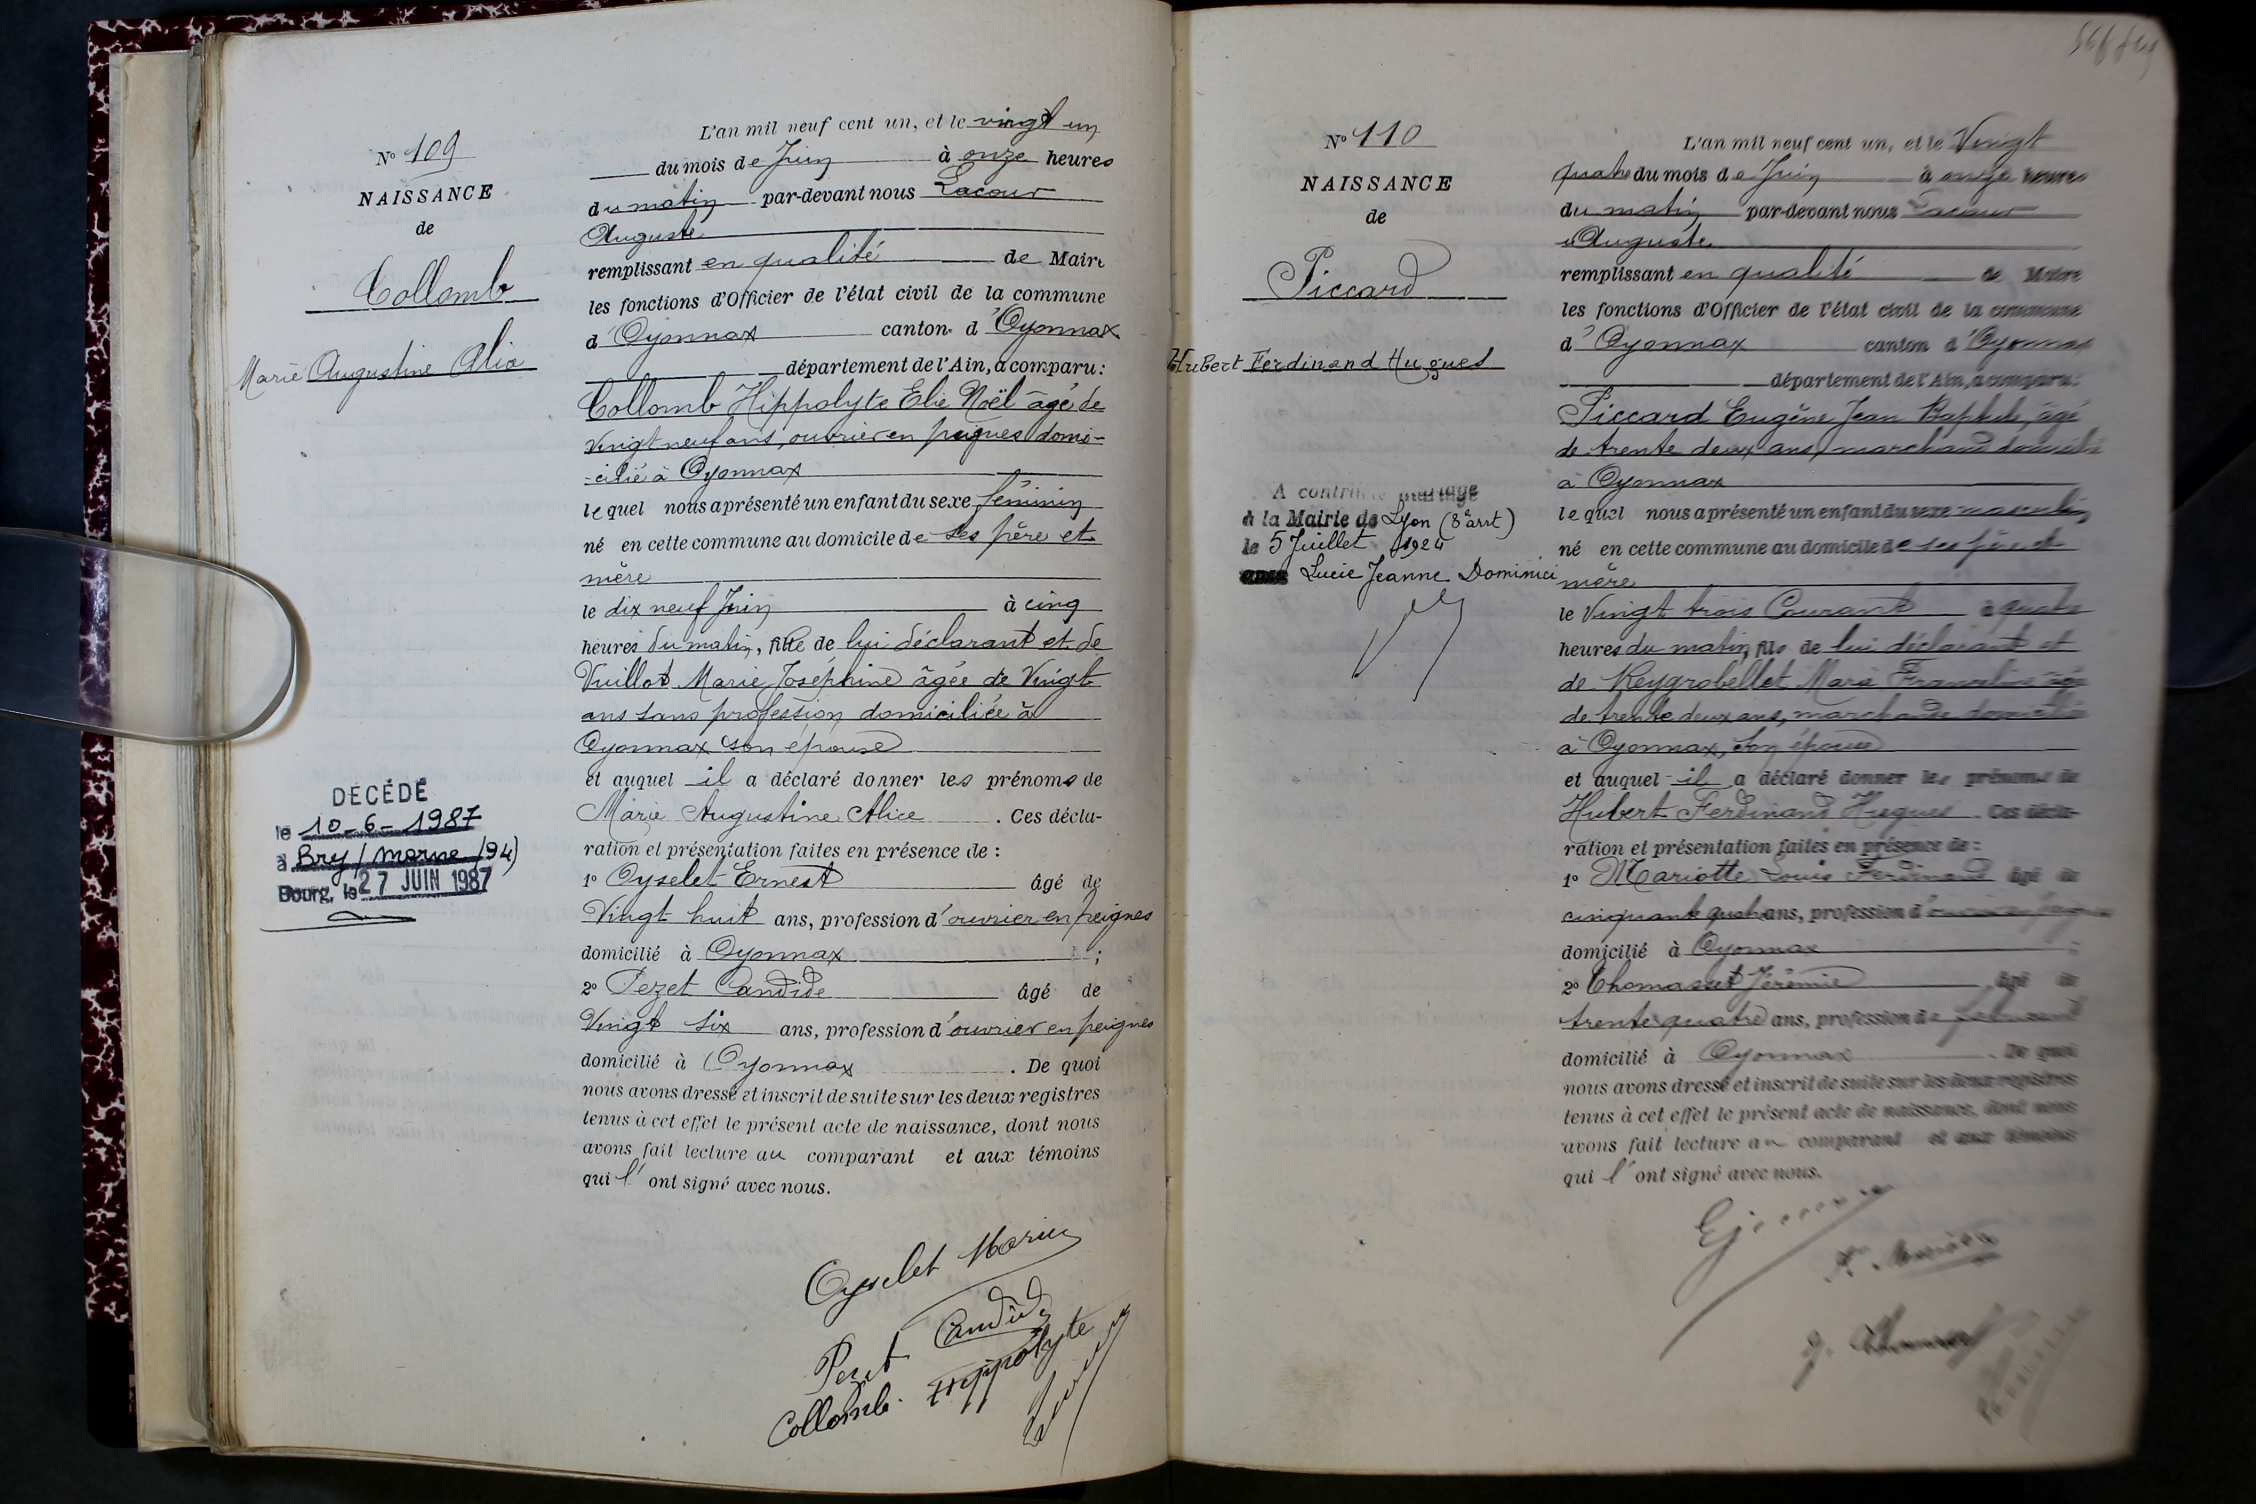 N° 109
NAISSANCE
de
Collomb
Marie Augustine Alice
DÉCÉDÉ
le 10-6-1987
à Bry/Marne (94)
Bourg, le 27 JUIN 1987
L'an mil neuf cent un, et le vingt un
du mois de Juin à onze heures
du matin par-devant nous Lacour
Auguste
remplissant en qualité de Maire
les fonctions d'Officier de l'état civil de la commune
d'Oyonnax canton d'Oyonnax
département de l'Ain, a comparu:
Collomb Hippolyte Elie Noël âgé de
vingt neuf ans, ouvrier en peignes domi-
-cilié à Oyonnax
lequel nous a présenté un enfant du sexe féminin
né en cette commune au domicile de ses père et
mère
le dix neuf Juin à cinq
heures du matin, fille de lui déclarant et de
Vuillot Marie Joséphine âgée de Vingt
ans sans profession domiciliée à
Oyonnax son épouse
et auquel il a déclaré donner les prénoms de
Marie Augustine Alice. Ces décla-
ration et présentation faites en présence de :
1° Oyselet Ernest âgé de
Vingt huit ans, profession d'ouvrier en peignes
domicilié à Oyonnax ;
2° Pezet Candide âgé de
Vingt six ans, profession d'ouvrier en peignes
domicilié à Oyonnax. De quoi
nous avons dressé et inscrit de suite sur les deux registres
tenus à cet effet le présent acte de naissance, dont nous
avons fait lecture au comparant et aux témoins
qui l'ont signé avec nous.
Oyselet
Pezet Candide
Collomb. Hippolyte
N° 110
NAISSANCE
de
Piccard
Hubert Ferdinand Hugues
A contracté mariage
à la Mairie de Lyon (8e arrt)
le 5 Juillet 1924
avec Lucie Jeanne Dominici
L'an mil neuf cent un, et le Vingt
quatre du mois de Juin à onze heures
du matin par-devant nous Lacour
Auguste
remplissant en qualité de Maire
les fonctions d'Officier de l'état civil de la commune
d'Oyonnax canton d'Oyonnax
département de l'Ain, a comparu:
Piccard Eugène Jean Baptiste, âgé
de trente deux ans, marchand domicilié
à Oyonnax
lequel nous a présenté un enfant du sexe masculin
né en cette commune au domicile de ses père et
mère
le Vingt trois Courant à quatre
heures du matin, fils de lui déclarant et
de Reygrobellet Marie Franceline âgée
de trente deux ans, marchande domiciliée
à Oyonnax, son épouse
et auquel il a déclaré donner les prénoms de
Hubert Ferdinand Hugues. Ces décla-
ration et présentation faites en présence de :
1° Mariotte Louis Ferdinand âgé de
cinquante quatre ans, profession d'ouvrier en peignes
domicilié à Oyonnax ;
2° Thomasset Jérémie âgé de
trente quatre ans, profession de
domicilié à Oyonnax. De quoi
nous avons dressé et inscrit de suite sur les deux registres
tenus à cet effet le présent acte de naissance, dont nous
avons fait lecture au comparant et aux témoins
qui l'ont signé avec nous.